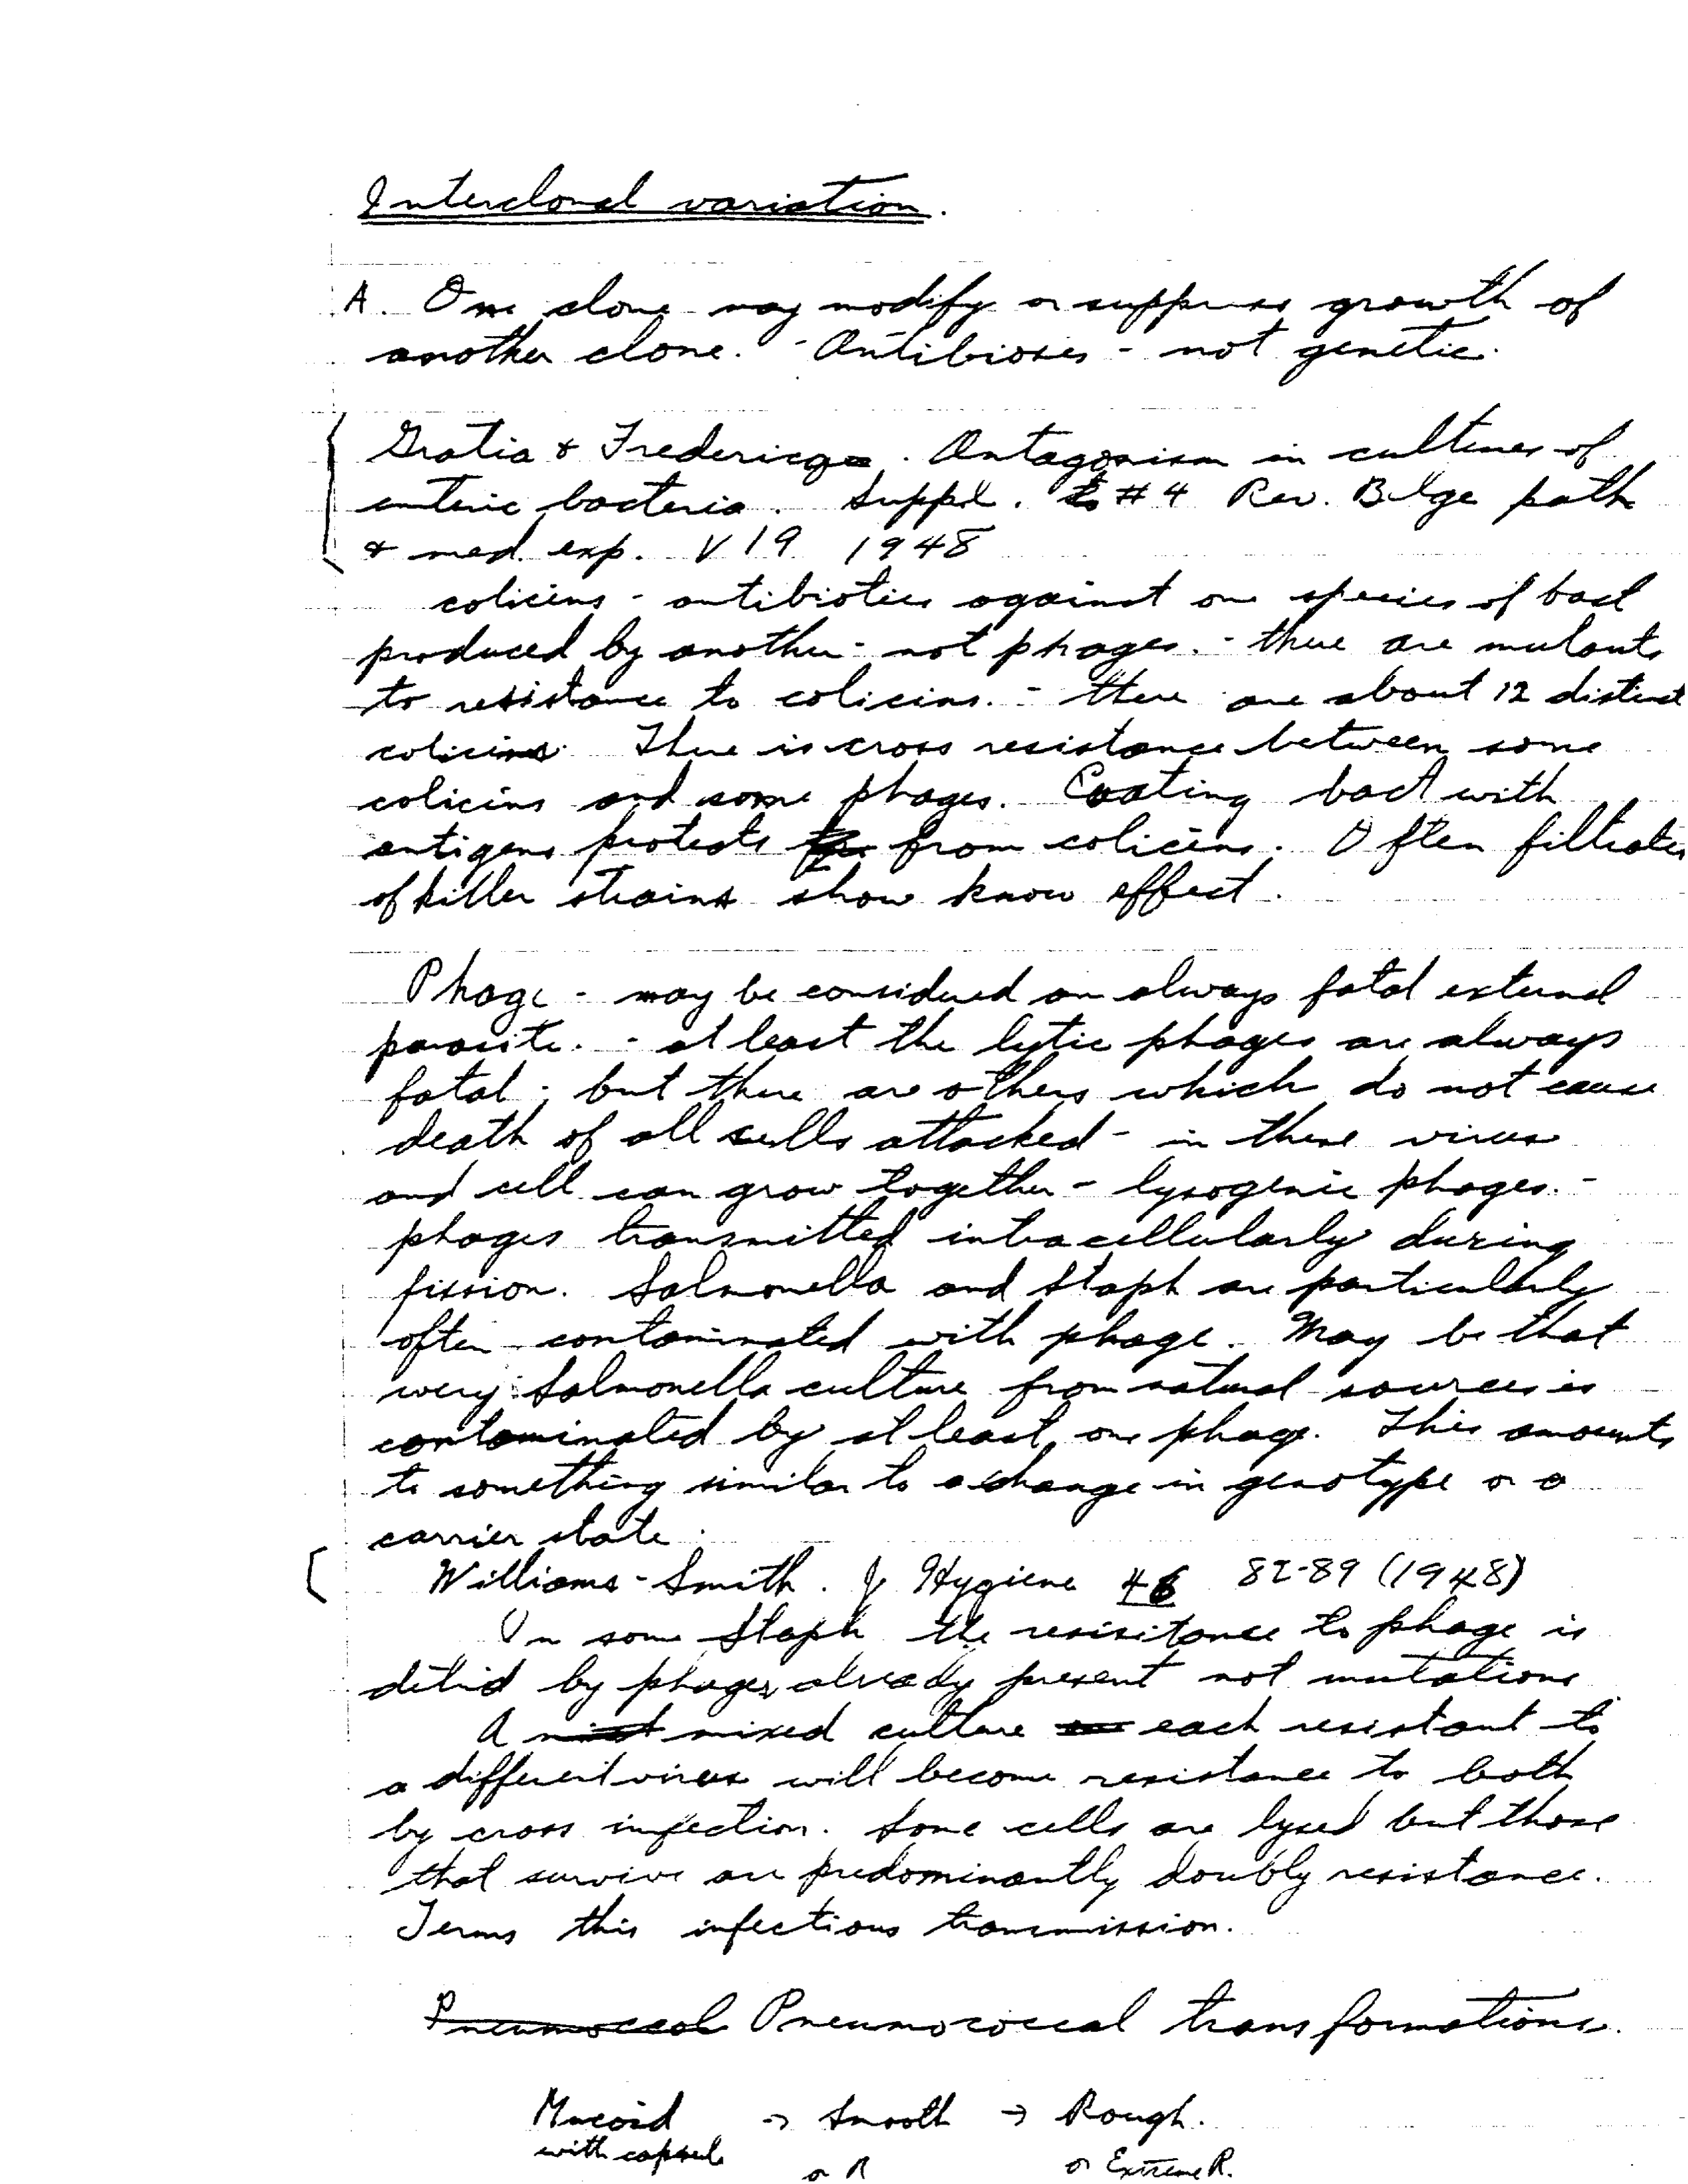 Interclonal variation.
A. One clone may modify or suppress growth of
another clone. - Antibioses - not genetic.
Gratia & Fredericq. Antagonism in cultures of
enteric bacteria. Suppl. to #4 Rev. Belge path
& med. exp. V 19 1948
colicins - antibiotics against one species of bact
produced by another - not phages. - there are mutants
to resistance to colicins. - there are about 12 distinct
colicins. There is cross resistance between some
colicins and some phages. Coating bact with
antigens protects from colicins. Often filtrates
of killer strains show know effect.
Phage - may be considered an always fatal external
parasite. - at least the lytic phages are always
fatal; but there are others which do not cause
death of all cells attacked - in these virus
and cell can grow together - lysogenic phages. -
phages transmitted intracellularly during
fission. Salmonella and Staph are particularly
often contaminated with phage. May be that
every Salmonella culture from natural sources is
contaminated by at least one phage. This amounts
to something similar to a change in genotype or a
carrier state.
Williams-Smith. J Hygiene 46 82-89 (1948)
In some Staph the resisitance to phage is
det'd by phages already present not mutations
A mixed culture each resistant to
a different virus will become resistance to both
by cross infection. Some cells are lysed but those
that survive are predominantly doubly resistance.
Terms this infectious transmission.
Pneumoccal Pneumococcal transformations.
Mucoid → Smooth → Rough.
with capsule
or R or Extreme R.